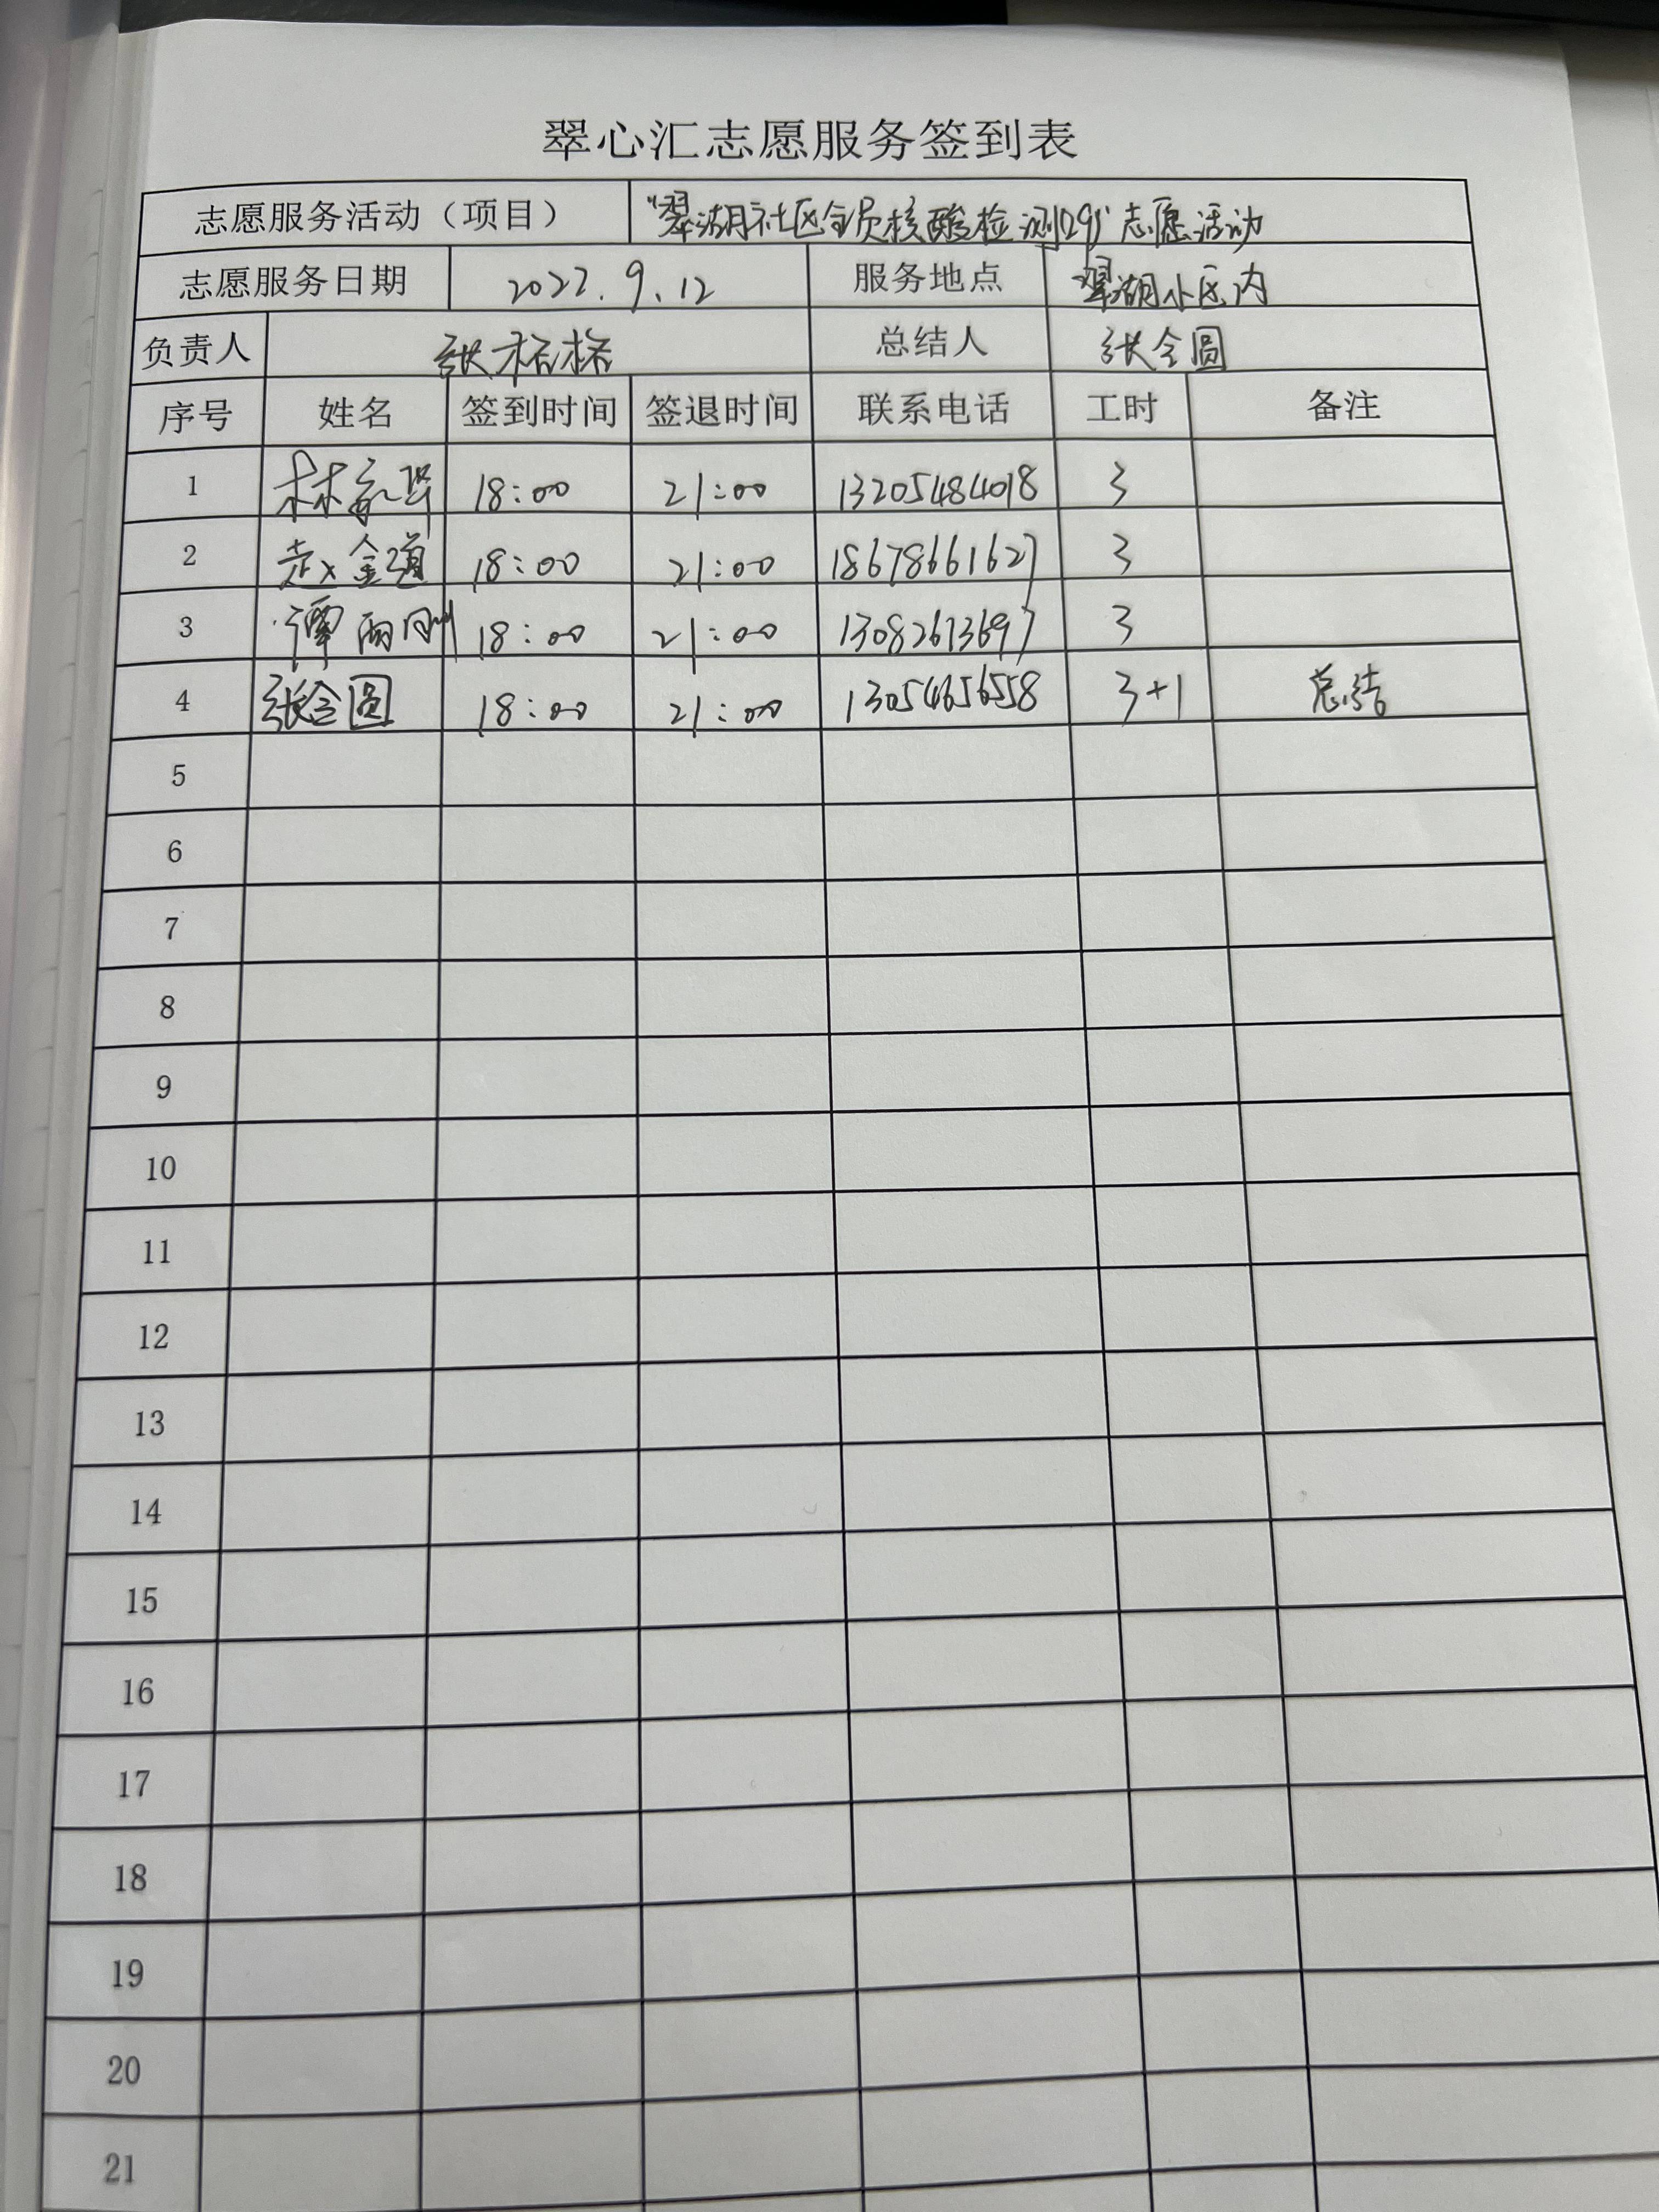 翠心汇志愿服务签到表
志愿服务活动（项目） “翠湖社区全员核酸检测129”志愿活动
志愿服务日期 2022.9.12 服务地点 翠湖小区内
负责人 张格格 总结人 张全圆
序号 姓名 签到时间 签退时间 联系电话 工时 备注
1 18:00 21:00 13205484018 3
2 赵金道 18:00 21:00 18678661627 3
3 谭雨刚 18:00 21:00 13082673697 3
4 张全圆 18:00 21:00 13054656558 3+1 总结
5
6
7
8
9
10
11
12
13
14
15
16
17
18
19
20
21